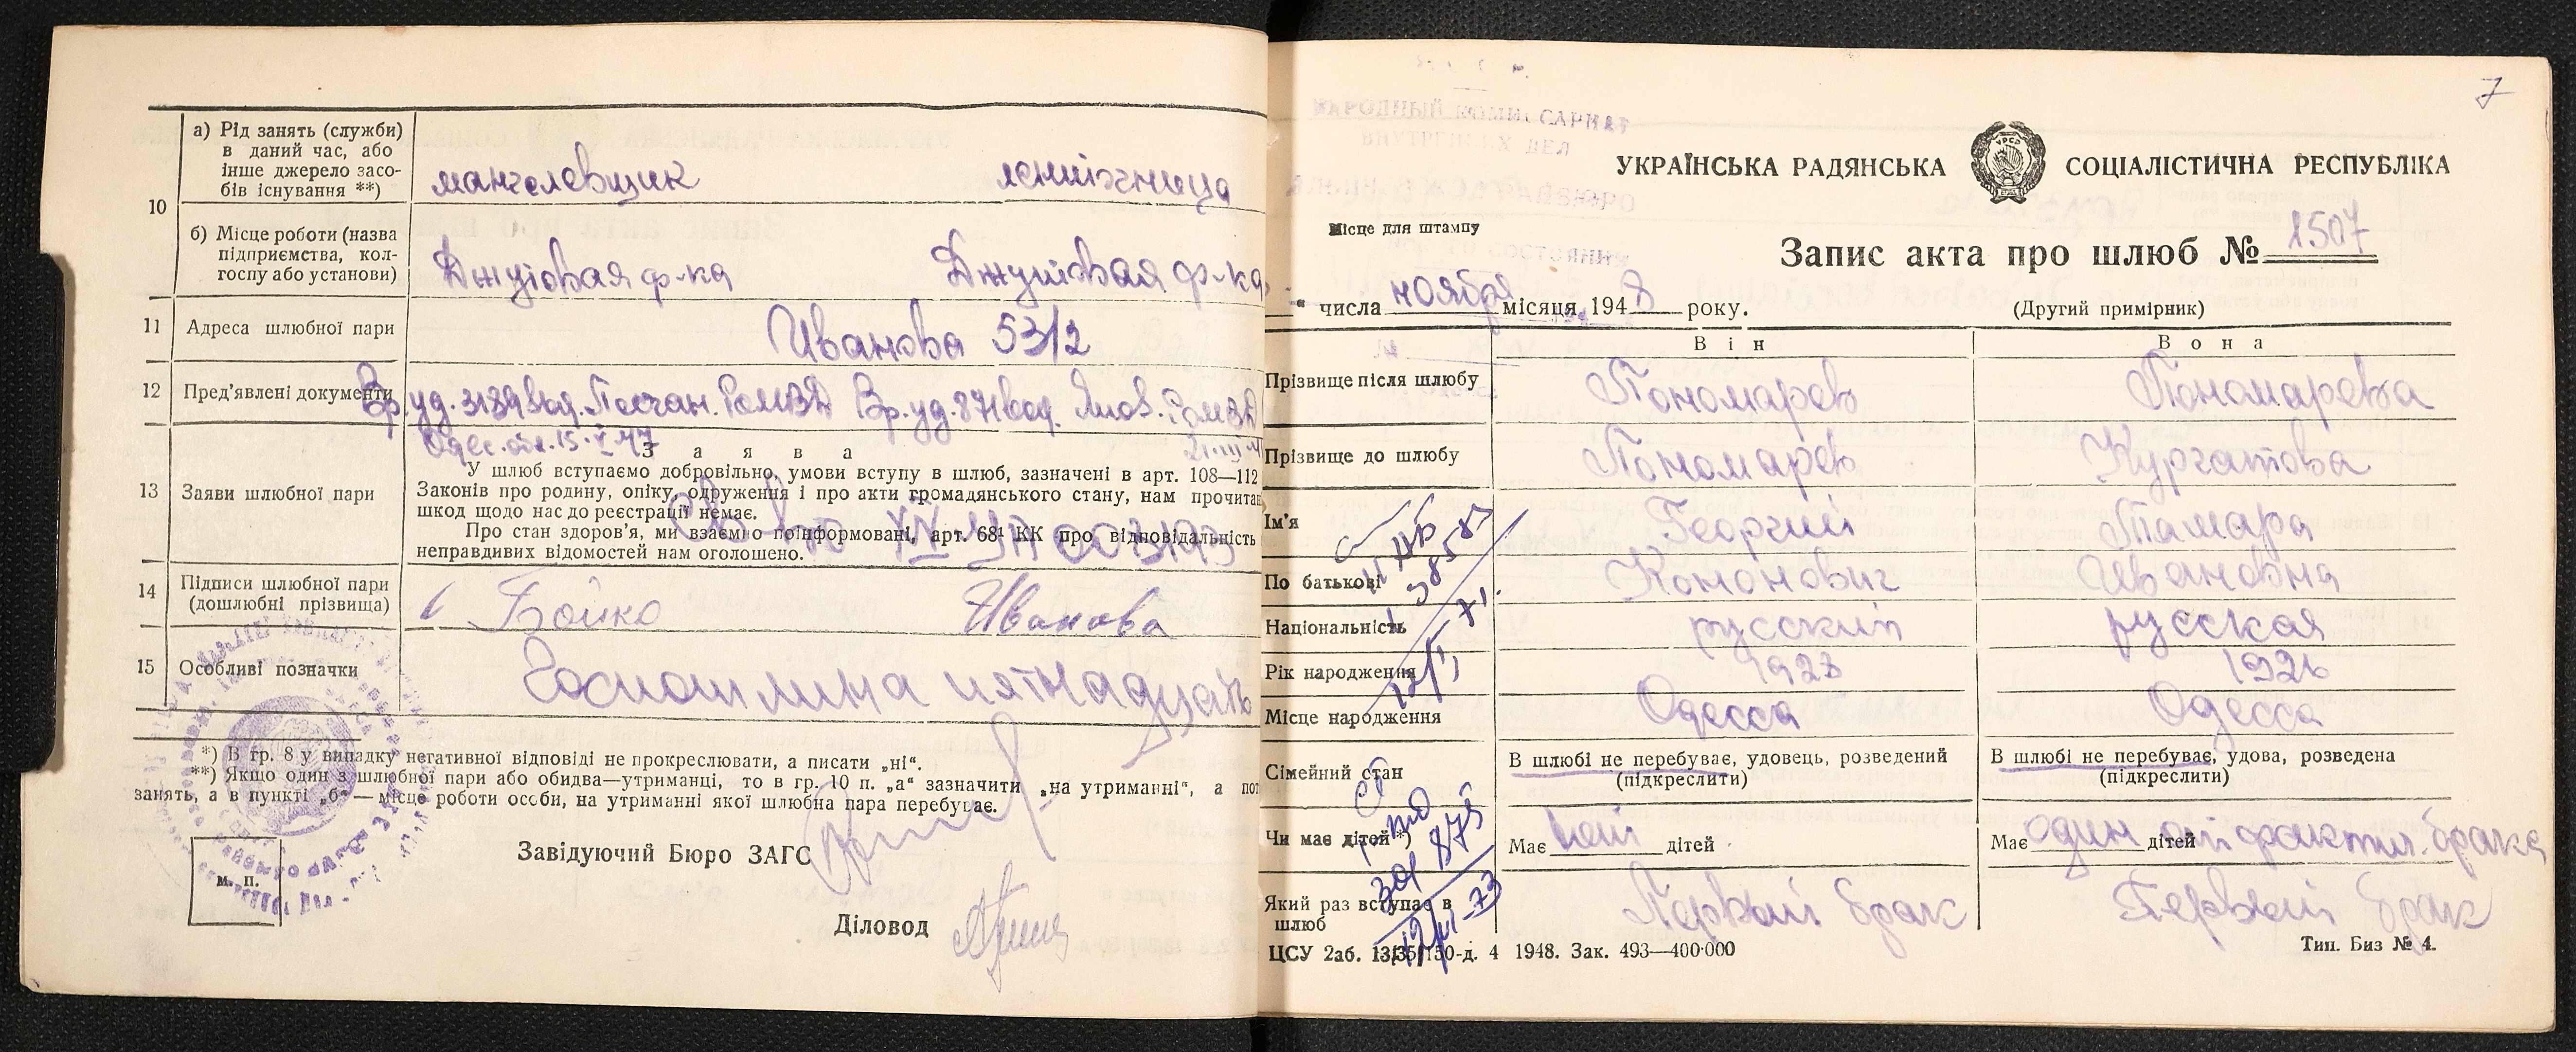 10
а) Рід занять (служби)
в даний час, або
інше джерело засо-
бів існування **)
мангелевщик
б) Місце роботи (назва
підприємства, кол-
госпу або установи)
Джутовая ф-ка
Джутовая ф-ка
11
Адреса шлюбної пари
Иванова 53/2
12
Пред’явлені документи
Вр. уд.
13
Заяви шлюбної пари
З а я в а
У шлюб вступаємо добровільно, умови вступу в шлюб, зазначені в арт. 108—112
Законів про родину, опіку, одруження і про акти громадянського стану, нам прочитан
шкод щодо нас до реєстрації немає.
Про стан здоров’я, ми взаємно поінформовані, арт. 68¹ КК про відповідальність
неправдивих відомостей нам оголошено.
14
Підписи шлюбної пари
(дошлюбні прізвища)
Бойко
Иванова
15
Особливі позначки
Госпошлина пятнадцать
*) В гр. 8 у випадку негативної відповіді не прокреслювати, а писати „ні“.
**) Якщо один з шлюбної пари або обидва—утриманці, то в гр. 10 п. „а“ зазначити „на утриманні“, а пот
занять, а в пункті „б“ — місце роботи особи, на утриманні якої шлюбна пара перебуває.
Завідуючий Бюро ЗАГС
м. п.
Діловод
7
НАРОДНЫЙ КОММИССАРИАТ
ВНУТРЕННИХ ДЕЛ
УКРАЇНСЬКА РАДЯНСЬКА СОЦІАЛІСТИЧНА РЕСПУБЛІКА
Місце для штампу
Запис акта про шлюб № 1507
“ числа ноября місяця 1948 року.
(Другий примірник)
Він
Вона
Прізвище після шлюбу
Пономарев
Пономарева
Прізвище до шлюбу
Пономарев
Курчатова
Ім’я
Георгий
Тамара
По батькові
Кононович
Ивановна
Національність
русский
русская
Рік народження
1926
Місце народження
Одесса
Одесса
Сімейний стан
В шлюбі не перебуває, удовець, розведений
(підкреслити)
В шлюбі не перебуває, удова, розведена
(підкреслити)
Чи має дітей *)
Має нет дітей
Має один дітей от фактич. брака
Який раз вступає в
шлюб
Первый брак
Первый брак
ЦСУ 2аб. 150-д. 4 1948. Зак. 493—400·000
Тип. Биз № 4.